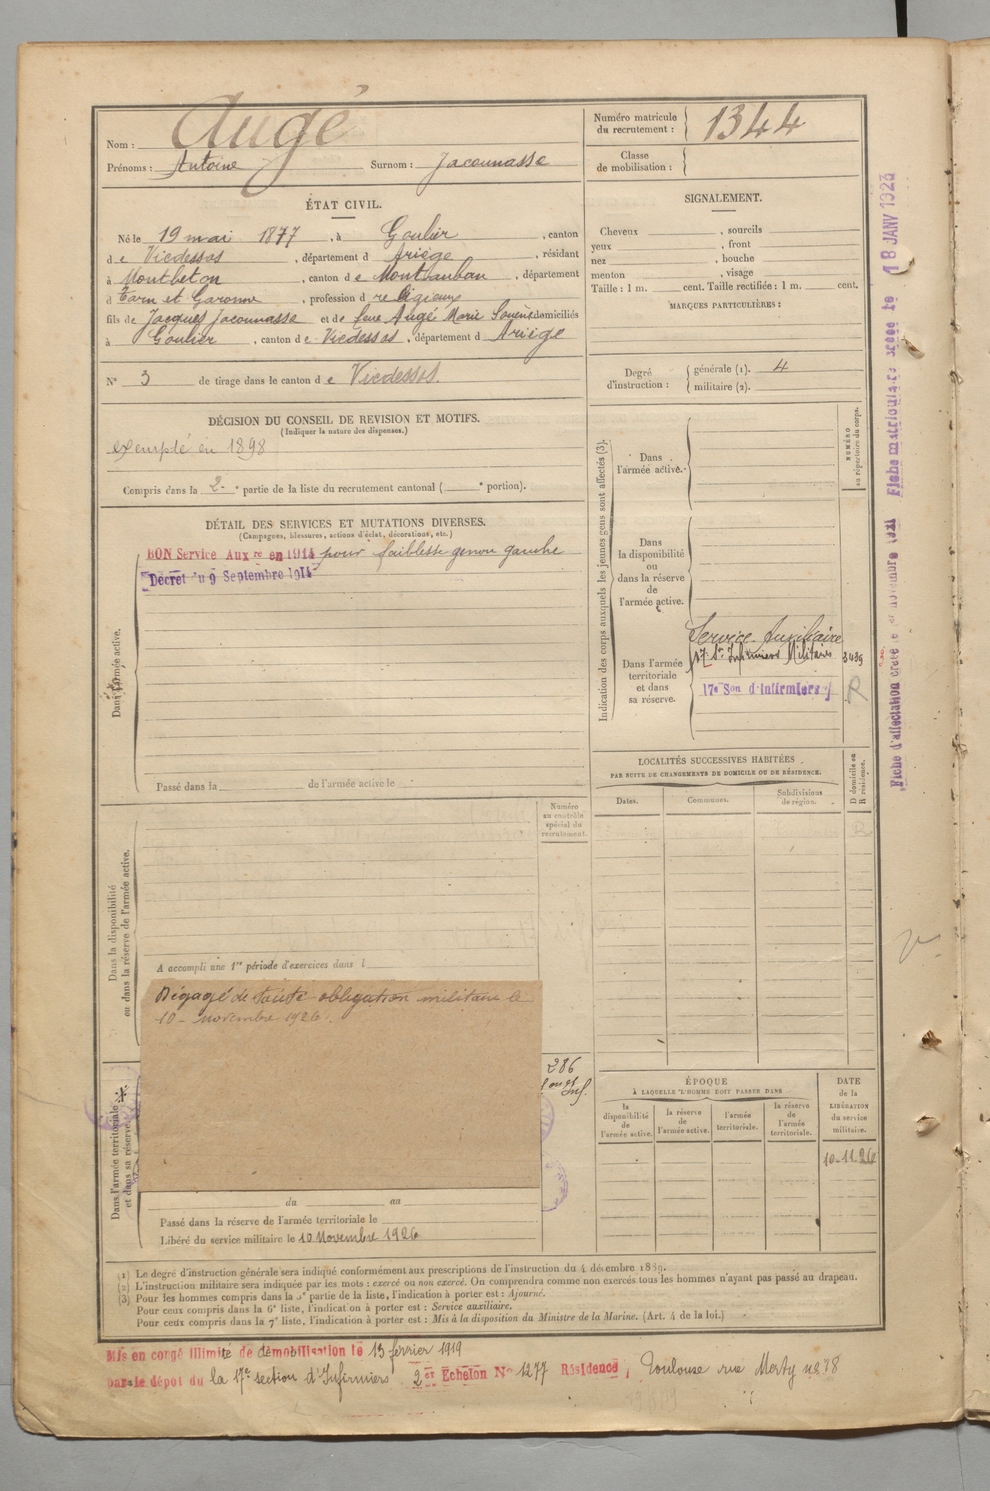 Nom : Augé
Prénoms : Antoine Surnom : Jacounasse
Numéro matricule
du recrutement : 1344
Classe
de mobilisation :
ÉTAT CIVIL.
Né le 19 mai 1877, à Goulier, canton
de Vicdessos, département d Ariège, résidant
à Montbeton, canton de Montauban, département
d Tarn et Garonne, profession d religieux
fils de Jacques Jacounasse et de feue Augé Marie domiciliés
à Goulier, canton de Vicdessos, département d Ariège
N° 3 de tirage dans le canton de Vicdessos.
SIGNALEMENT.
Cheveux , sourcils
yeux , front
nez , bouche
menton , visage
Taille : 1 m. cent. Taille rectifiée : 1 m. cent.
MARQUES PARTICULIÈRES :
Degré
d'instruction :
générale (1). 4
militaire (2).
DÉCISION DU CONSEIL DE REVISION ET MOTIFS.
(Indiquer la nature des dispenses.)
exempté en 1898
Compris dans la 2e partie de la liste du recrutement cantonal ( e portion).
DÉTAIL DES SERVICES ET MUTATIONS DIVERSES.
(Campagnes, blessures, actions d'éclat, décorations, etc.)
BON Service Aux re en 1914 pour faiblesse genou gauche
Décret du 9 Septembre 1914
Dans l'armée active.
Passé dans la de l'armée active le
Indication des corps auxquels les jeunes gens sont affectés (3).
NUMÉRO
au répertoire du corps.
Dans
l'armée active.
Dans
la disponibilité
ou
dans la réserve
de
l'armée active.
Dans l'armée
territoriale
et dans
sa réserve.
Service Auxiliaire
17e Son Infirmiers Militaires 3439
17e Son d'Infirmiers
R
LOCALITÉS SUCCESSIVES HABITÉES
PAR SUITE DE CHANGEMENTS DE DOMICILE OU DE RÉSIDENCE.
Dates. Communes. Subdivisions
de région.
D domicile ou
R résidence.
Numéro
au contrôle
spécial du
recrutement.
Dans la disponibilité
ou dans la réserve de l'armée active.
A accompli une 1re période d'exercices dans l
Dégagé de toute obligation militaire le
10 novembre 1926.
286
Dans l'armée territoriale
et dans sa réserve.
du au
Passé dans la réserve de l'armée territoriale le
Libéré du service militaire le 10 Novembre 1926
ÉPOQUE
À LAQUELLE L'HOMME DOIT PASSER DANS
la
disponibilité
de
l'armée active.
la réserve
de
l'armée active.
l'armée
territoriale.
la réserve
de
l'armée
territoriale.
DATE
de la
LIBÉRATION
du service
militaire.
10-11-26
(1) Le degré d'instruction générale sera indiqué conformément aux prescriptions de l'instruction du 4 décembre 1889.
(2) L'instruction militaire sera indiquée par les mots : exercé ou non exercé. On comprendra comme non exercés tous les hommes n'ayant pas passé au drapeau.
(3) Pour les hommes compris dans la 5e partie de la liste, l'indication à porter est : Ajourné.
Pour ceux compris dans la 6e liste, l'indication à porter est : Service auxiliaire.
Pour ceux compris dans la 7e liste, l'indication à porter est : Mis à la disposition du Ministre de la Marine. (Art. 4 de la loi.)
Mis en congé illimité de démobilisation le 13 fevrier 1919
par le dépôt du la 17e section d'Infirmiers 2e Echelon N° 1277 Résidence, Toulouse rue Merly no 28
Fiche d'affectation créée le 1er novembre 1921 Fiche matriculaire créée le 18 JANV 1923